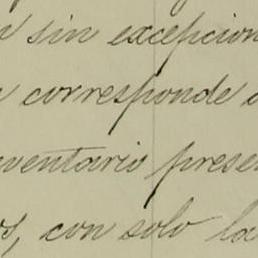 n sin excepcion
corresponde a
ventario prese
os, con solo la